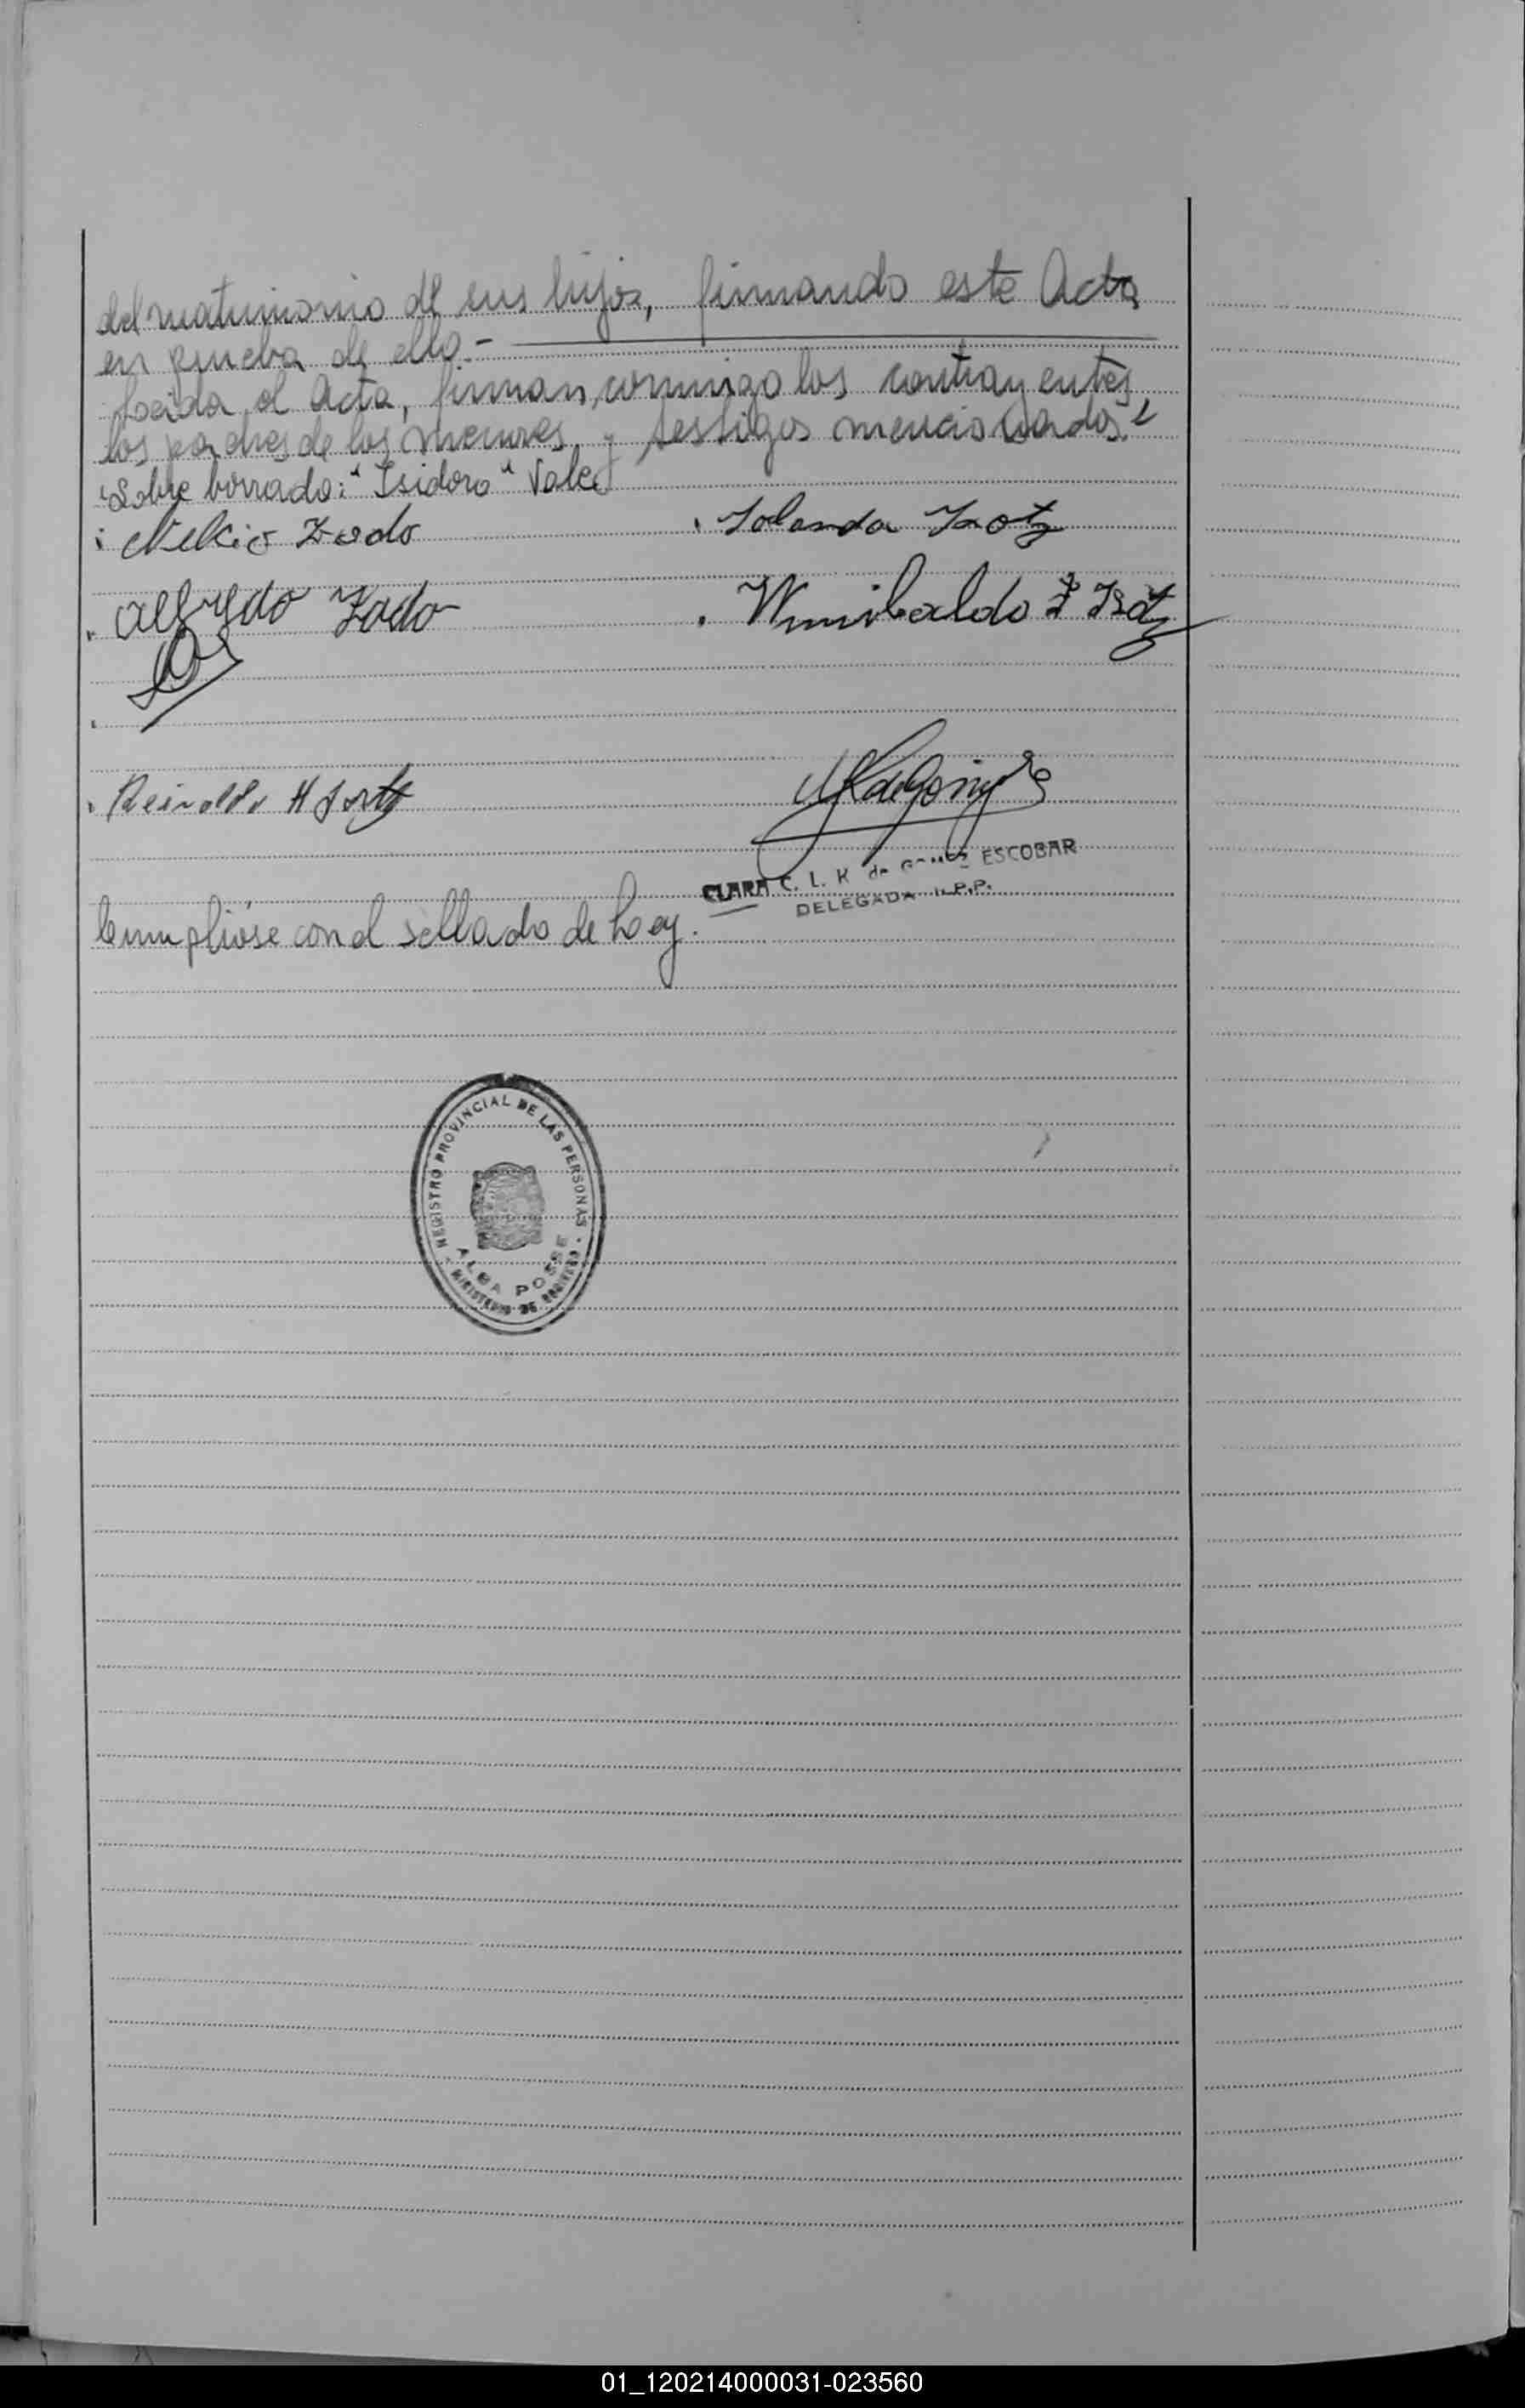 del matrimonio de sus hijos, firmando este Acta
en prueba de ello.-
Leída el Acta, firman conmigo los contrayentes,
los padres de los menores, y testigos mencionados.
Sobre borrado: "Isidoro" Vale
Zado
Iolanda
Alfredo Zado
Wunibaldo
Reinaldo H
CLARA C. L. K de GOMEZ ESCOBAR
DELEGADA R.P.P.
Cumplióse con el sellado de Ley.
REGISTRO PROVINCIAL DE LAS PERSONAS
ALBA POSSE
MINISTERIO DE GOBIERNO
01_120214000031-023560